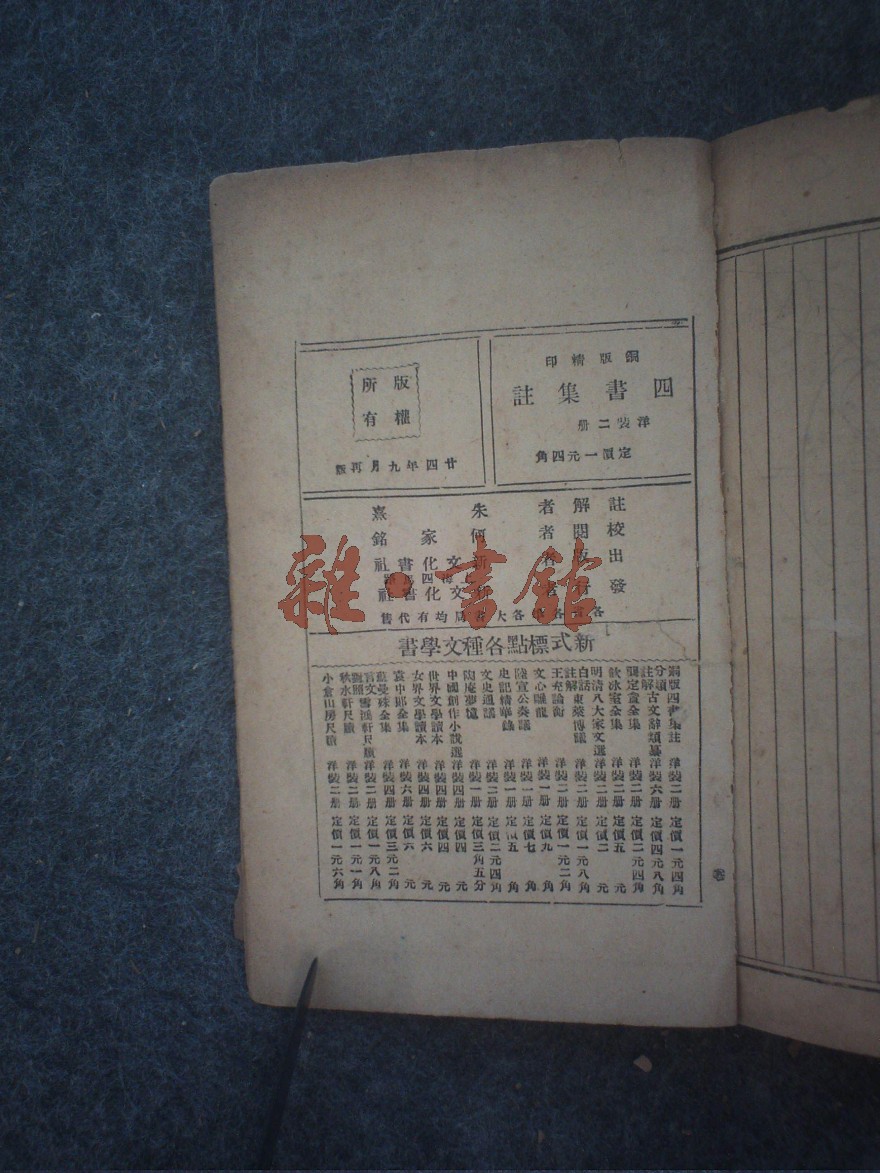 銅版精印
四書集註
洋裝二册
定價一元四角
版權
所有
廿四年九月再版
註解者 朱熹
校閱者 何家銘
出版者 新文化書社
發行者 新文化書社
各省各埠各大書局均有代售
雜·書館
新式標點各種文學書
銅版四書集註 洋裝二册 定價一元四角
分類註解古文辭類纂 洋裝六册 定價四元八角
龔定盦全集 洋裝二册 定價二元四角
飲冰室全集 洋裝二册 定價五元
明清八大家文選 洋裝四册 定價二元
白話註解東萊博議 洋裝二册 定價一元八角
王充論衡 洋裝二册 定價一元二角
文心雕龍 洋裝一册 定價九角
陸宣公奏議 洋裝一册 定價七角
史記精華錄 洋裝一册 定價五角
文史通議 洋裝二册 定價二元四角
陶庵夢憶 洋裝一册 定價三角五分
中國創作小說選 洋裝四册 定價四元
世界文學讀本 洋裝四册 定價四元
女界文學讀本 洋裝四册 定價六元
袁中郎全集 洋裝六册 定價六元
蘇曼殊全集 洋裝四册 定價三元二角
言文對照雪鴻軒尺牘 洋裝二册 定價一元八角
秋水軒尺牘 洋裝二册 定價一元一角
小倉山房尺牘 洋裝二册 定價一元六角
卷